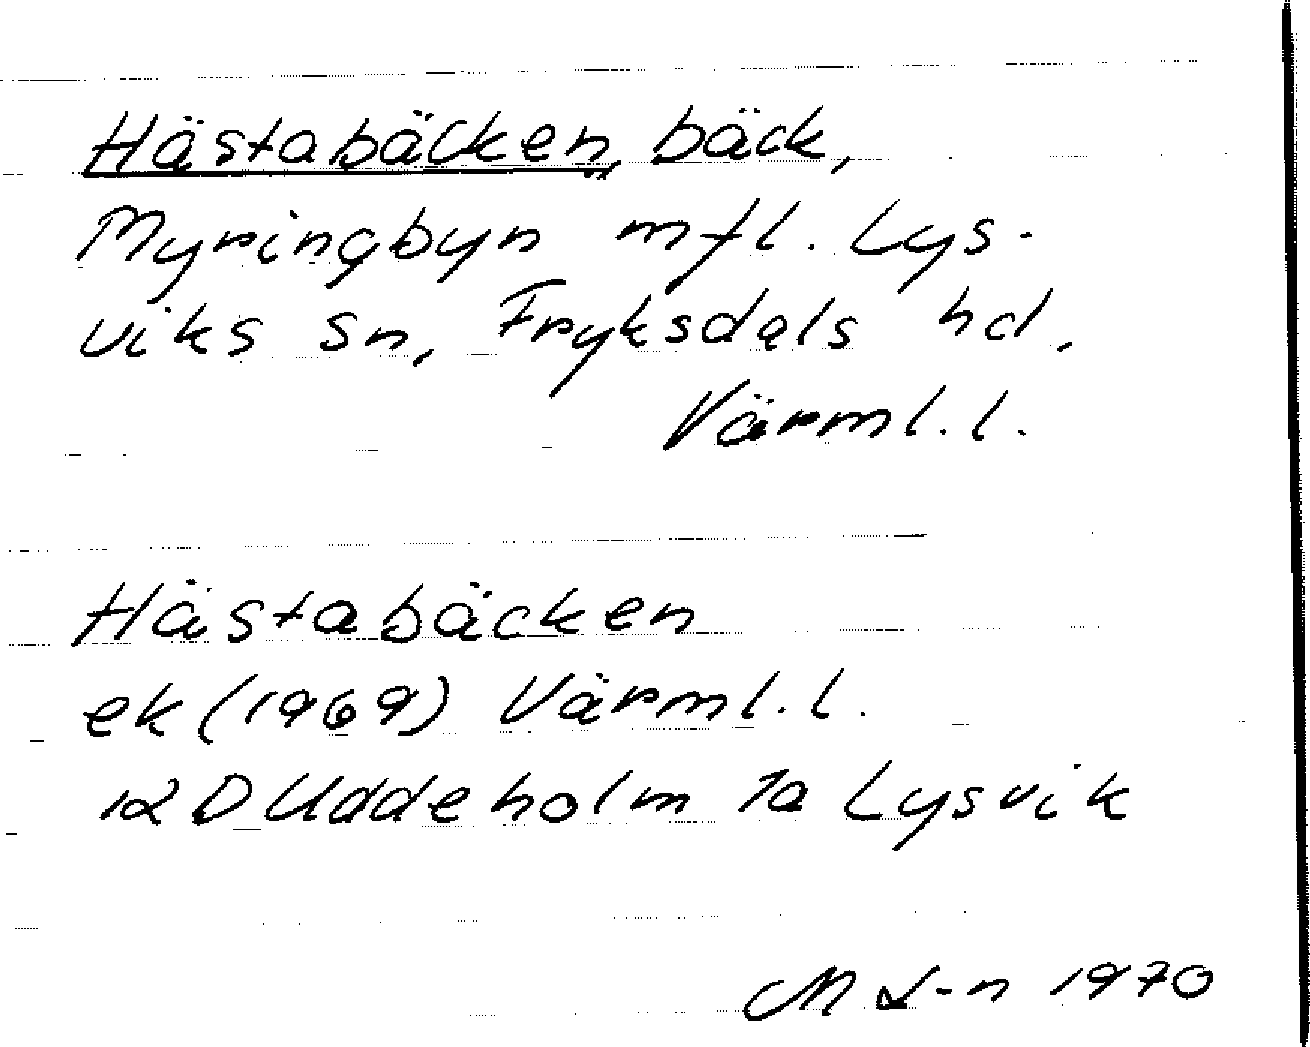 Hästabäcken, bäck,
Myringbyn mfl. Lys-
viks sn, Fryksdals hd,
Värml. l.
Hästabäcken
ek (1969) Värml. l.
12 D Uddeholm 7a Lysvik
M L-n 1970